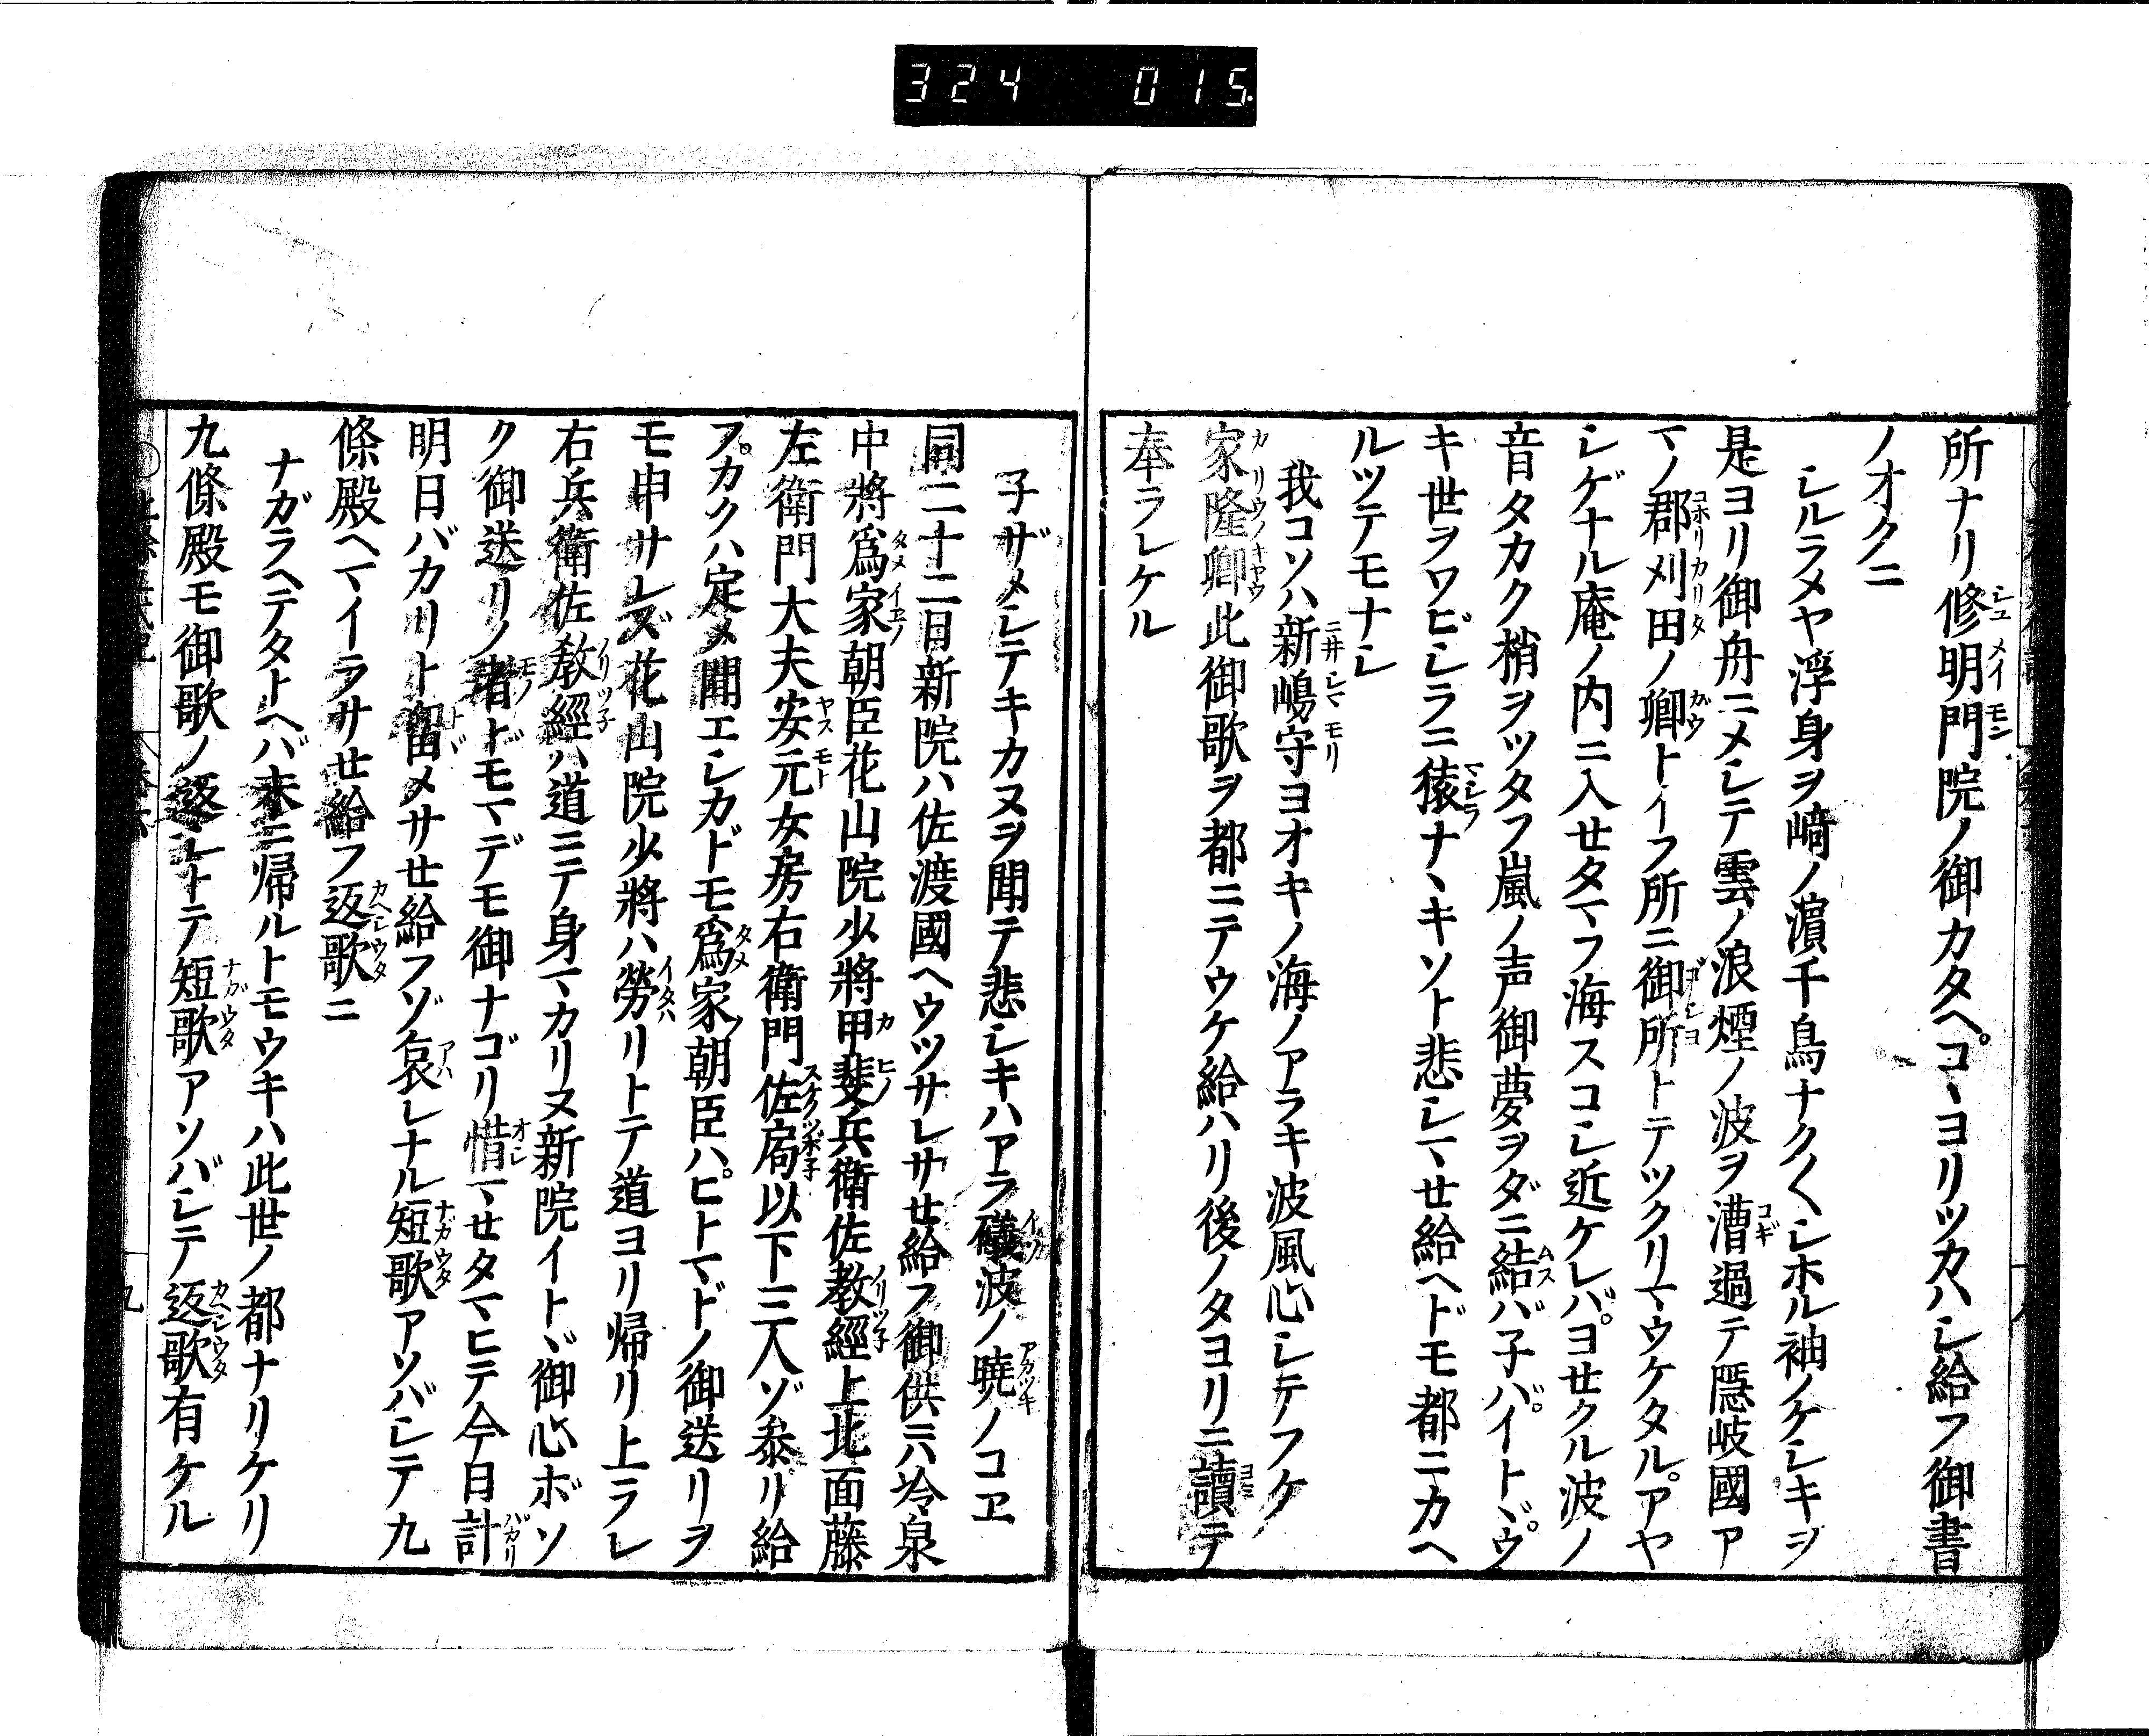 324 015
所ナリ修明門院ノ御カタヘ。コヽヨリツカハシ給フ御書
ノオクニ
シルラメヤ浮身ヲ﨑ノ濵千鳥ナク〱シホル袖ノケシキヲ
是ヨリ御舟ニメシテ雲ノ浪煙ノ波ヲ漕過テ隠岐國ア
マノ郡刈田ノ郷トイフ所ニ御所トテツクリマウケタル。アヤ
シゲナル庵ノ内ニ入セタマフ海スコシ近ケレバ。ヨセクル波ノ
音タカク梢ヲツタフ嵐ノ声御夢ヲダニ結バ子バ。イトヾ。ウ
キ世ヲワビシラニ猿ナヽキソト悲シマセ給ヘドモ都ニカヘ
ルツテモナシ
我コソハ新嶋守ヨオキノ海ノアラキ波風心シテフケ
家隆卿此御歌ヲ都ニテウケ給ハリ後ノタヨリニ讀テ
奉ラレケル
子ザメシテキカヌヲ聞テ悲シキハアラ礒波ノ暁ノコヱ
同二十二日新院ハ佐渡國ヘウツサレサセ給フ御供ニハ冷泉
中將爲家朝臣花山院少將甲斐兵衛佐教經上北面藤
左衛門大夫安元女房右衛門佐局以下三人ゾ叅リ給
フ。カクハ定メ聞エシカドモ爲家朝臣ハ。ヒトマドノ御送リヲ
モ申サレズ花山院少將ハ勞リトテ道ヨリ帰リ上ラレ
右兵衛佐教經ハ道ニテ身マカリヌ新院イトヾ御心ボソ
ク御送リノ者ドモマデモ御ナゴリ惜マセタマヒテ今日計
明日バカリト留メサセ給フゾ哀レナル短歌アソバシテ九
條殿ヘマイラサセ給フ返歌ニ
ナガラヘテタトヘバ末ニ帰ルトモウキハ此世ノ都ナリケリ
九條殿モ御歌ノ返シトテ短歌アソバシテ返歌有ケル
九